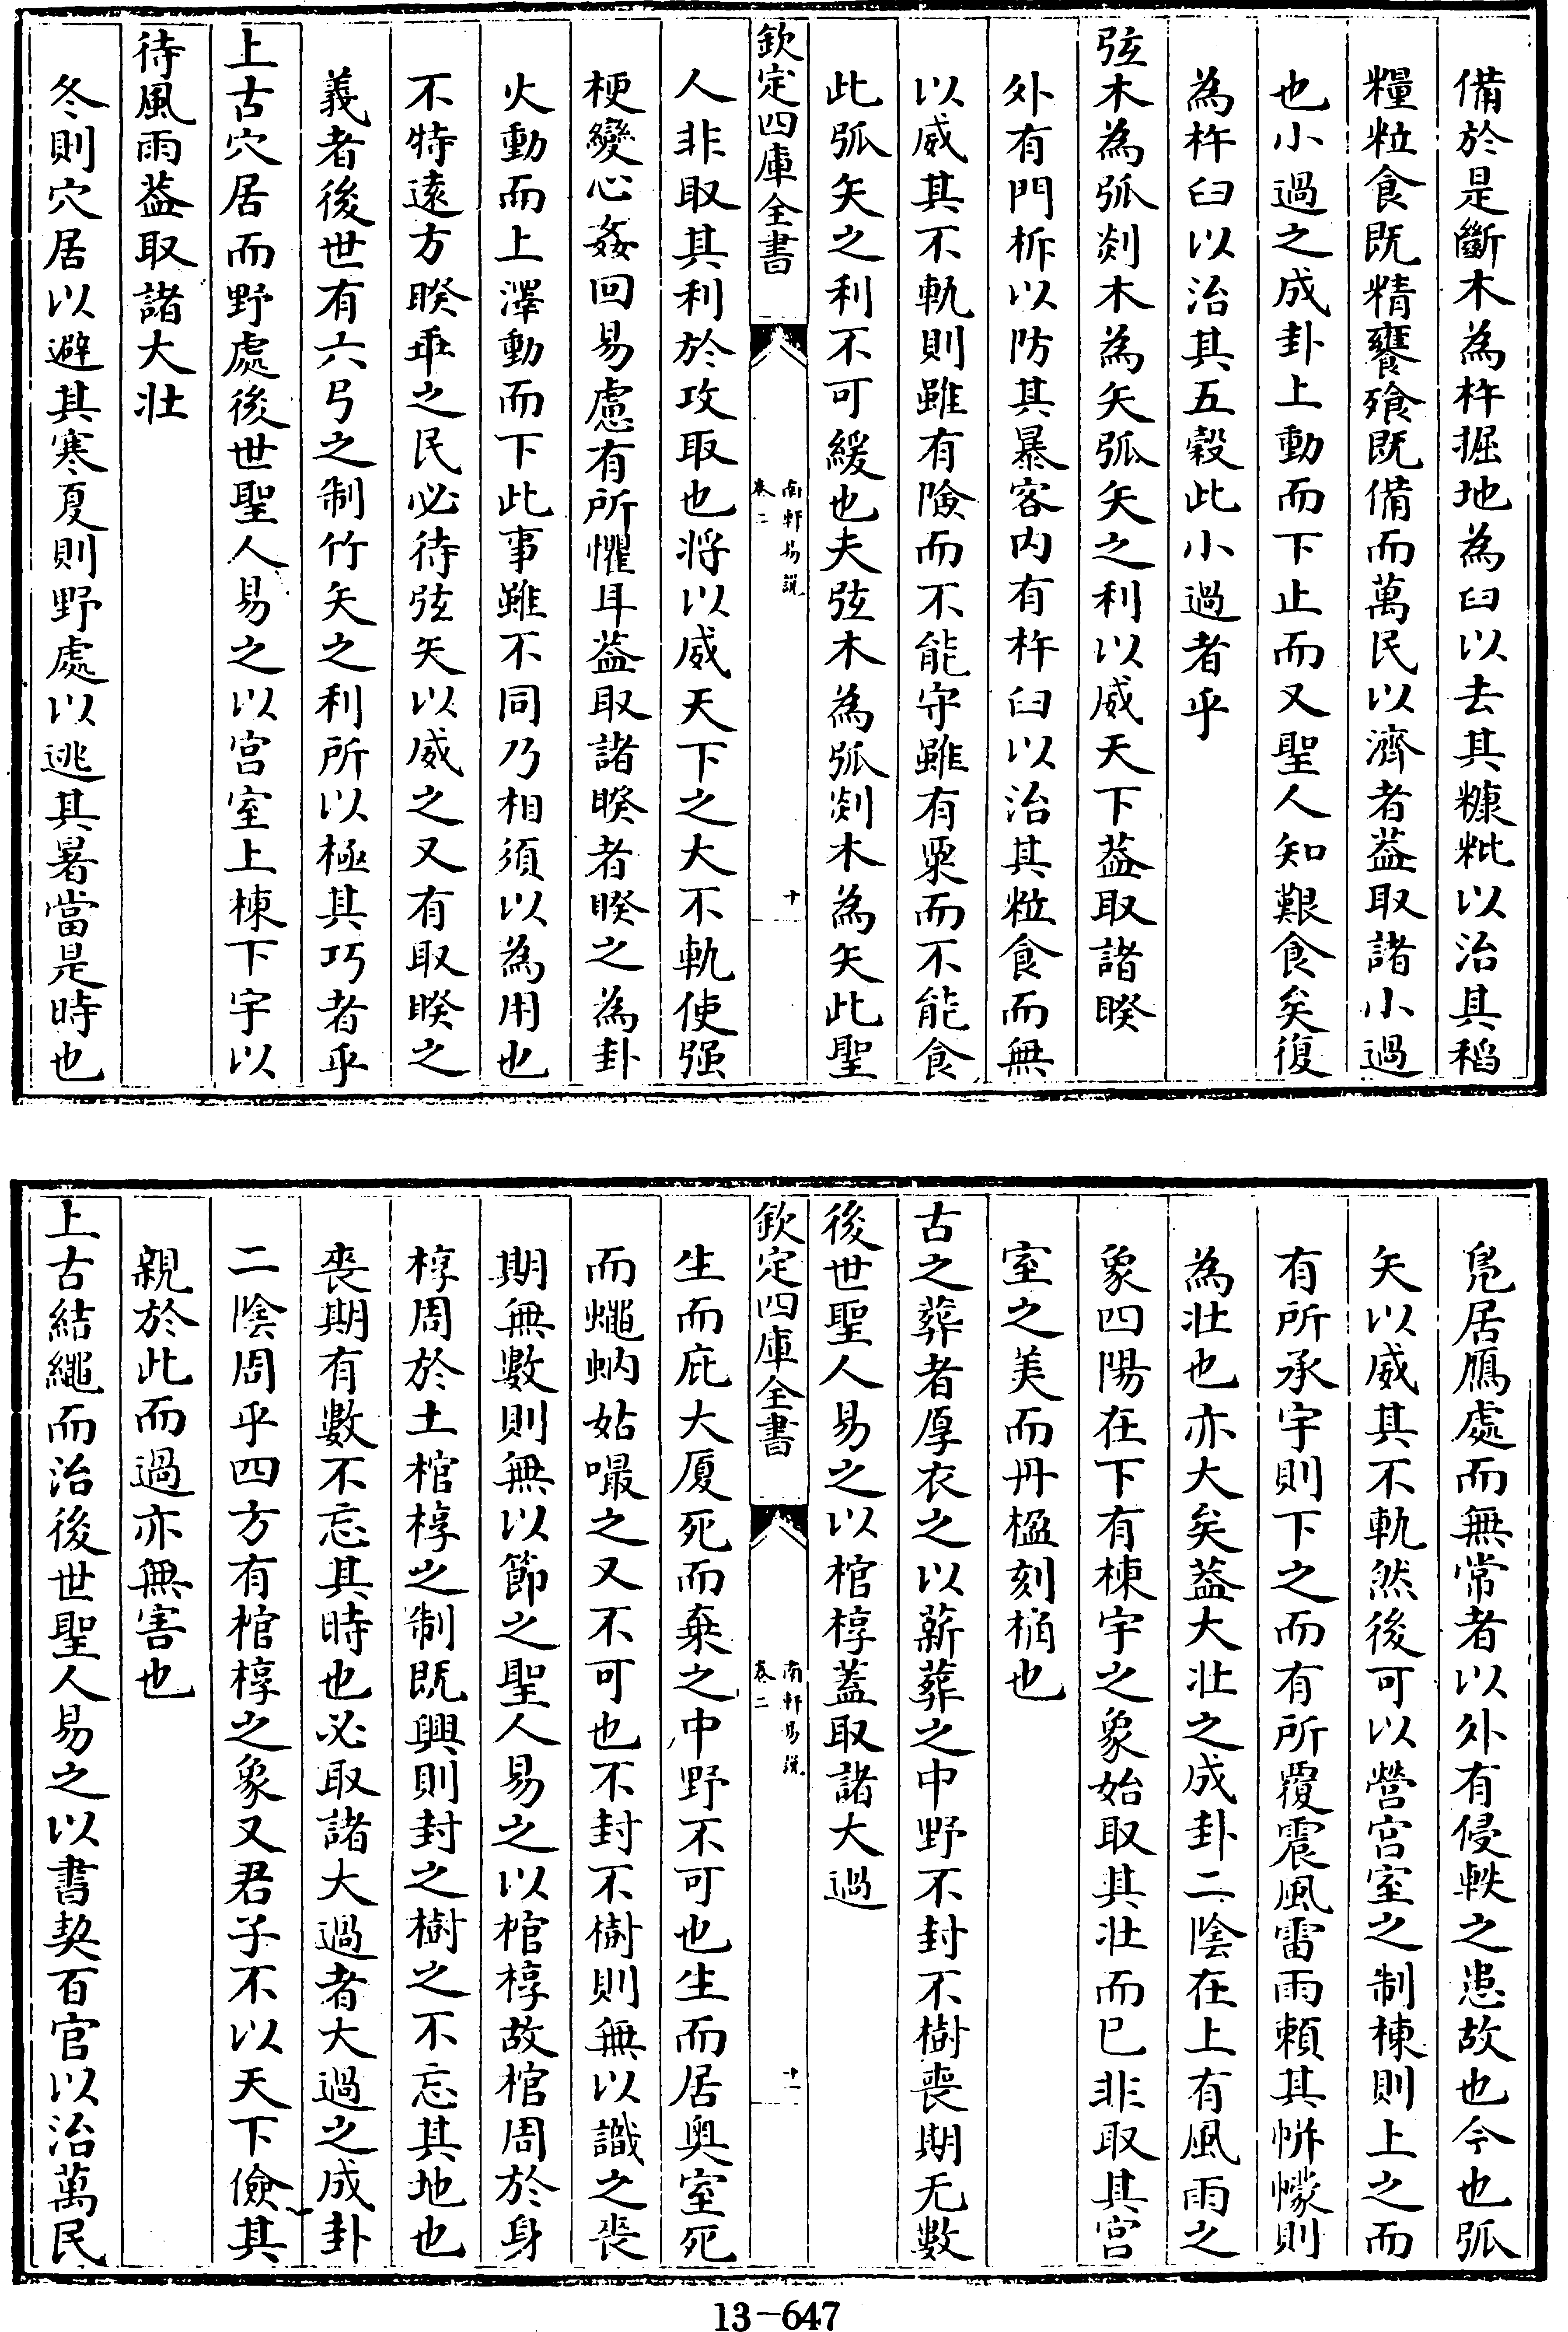 備於是斷木為杵掘地為臼以去其糠粃以治其稻
糧粒食既精饔飱既備而萬民以濟者葢取諸小過
也小過之成卦上動而下止而又聖人知艱食矣復
為杵臼以治其五穀此小過者乎
弦木為弧剡木為矢弧矢之利以威天下葢取諸睽
外有門柝以防其暴客内有杵臼以治其粒食而無
以威其不軌則雖有險而不能守雖有粟而不能食
此弧矢之利不可緩也夫弦木為弧剡木為矢此聖
欽定四庫全書
南軒易說
卷二
十
人非取其利於攻取也将以威天下之大不軌使强
梗變心姦回易慮有所懼耳葢取諸睽者睽之為卦
火動而上澤動而下此事雖不同乃相須以為用也
不特遠方睽乖之民必待弦矢以威之又有取睽之
義者後世有六弓之制竹矢之利所以極其巧者乎
上古穴居而野處後世聖人易之以宫室上棟下宇以
待風雨葢取諸大壮
冬則穴居以避其寒夏則野處以逃其暑當是時也
鳬居鴈處而無常者以外有侵軼之患故也今也弧
矢以威其不軌然後可以營宫室之制棟則上之而
有所承宇則下之而有所覆震風雷雨頼其帡幪則
為壮也亦大矣葢大壮之成卦二陰在上有風雨之
象四陽在下有棟宇之象始取其壮而已非取其宫
室之美而丹楹刻桷也
古之葬者厚衣之以薪葬之中野不封不樹喪期无數
後世聖人易之以棺椁蓋取諸大過
欽定四庫全書
南軒易說
卷二
十一
生而庇大厦死而棄之中野不可也生而居奥室死
而蠅蚋姑嘬之又不可也不封不樹則無以識之喪
期無數則無以節之聖人易之以棺椁故棺周於身
椁周於土棺椁之制既興則封之樹之不忘其地也
喪期有數不忘其時也必取諸大過者大過之成卦
二陰周乎四方有棺椁之象又君子不以天下儉其
親於此而過亦無害也
上古結繩而治後世聖人易之以書契百官以治萬民
13-647